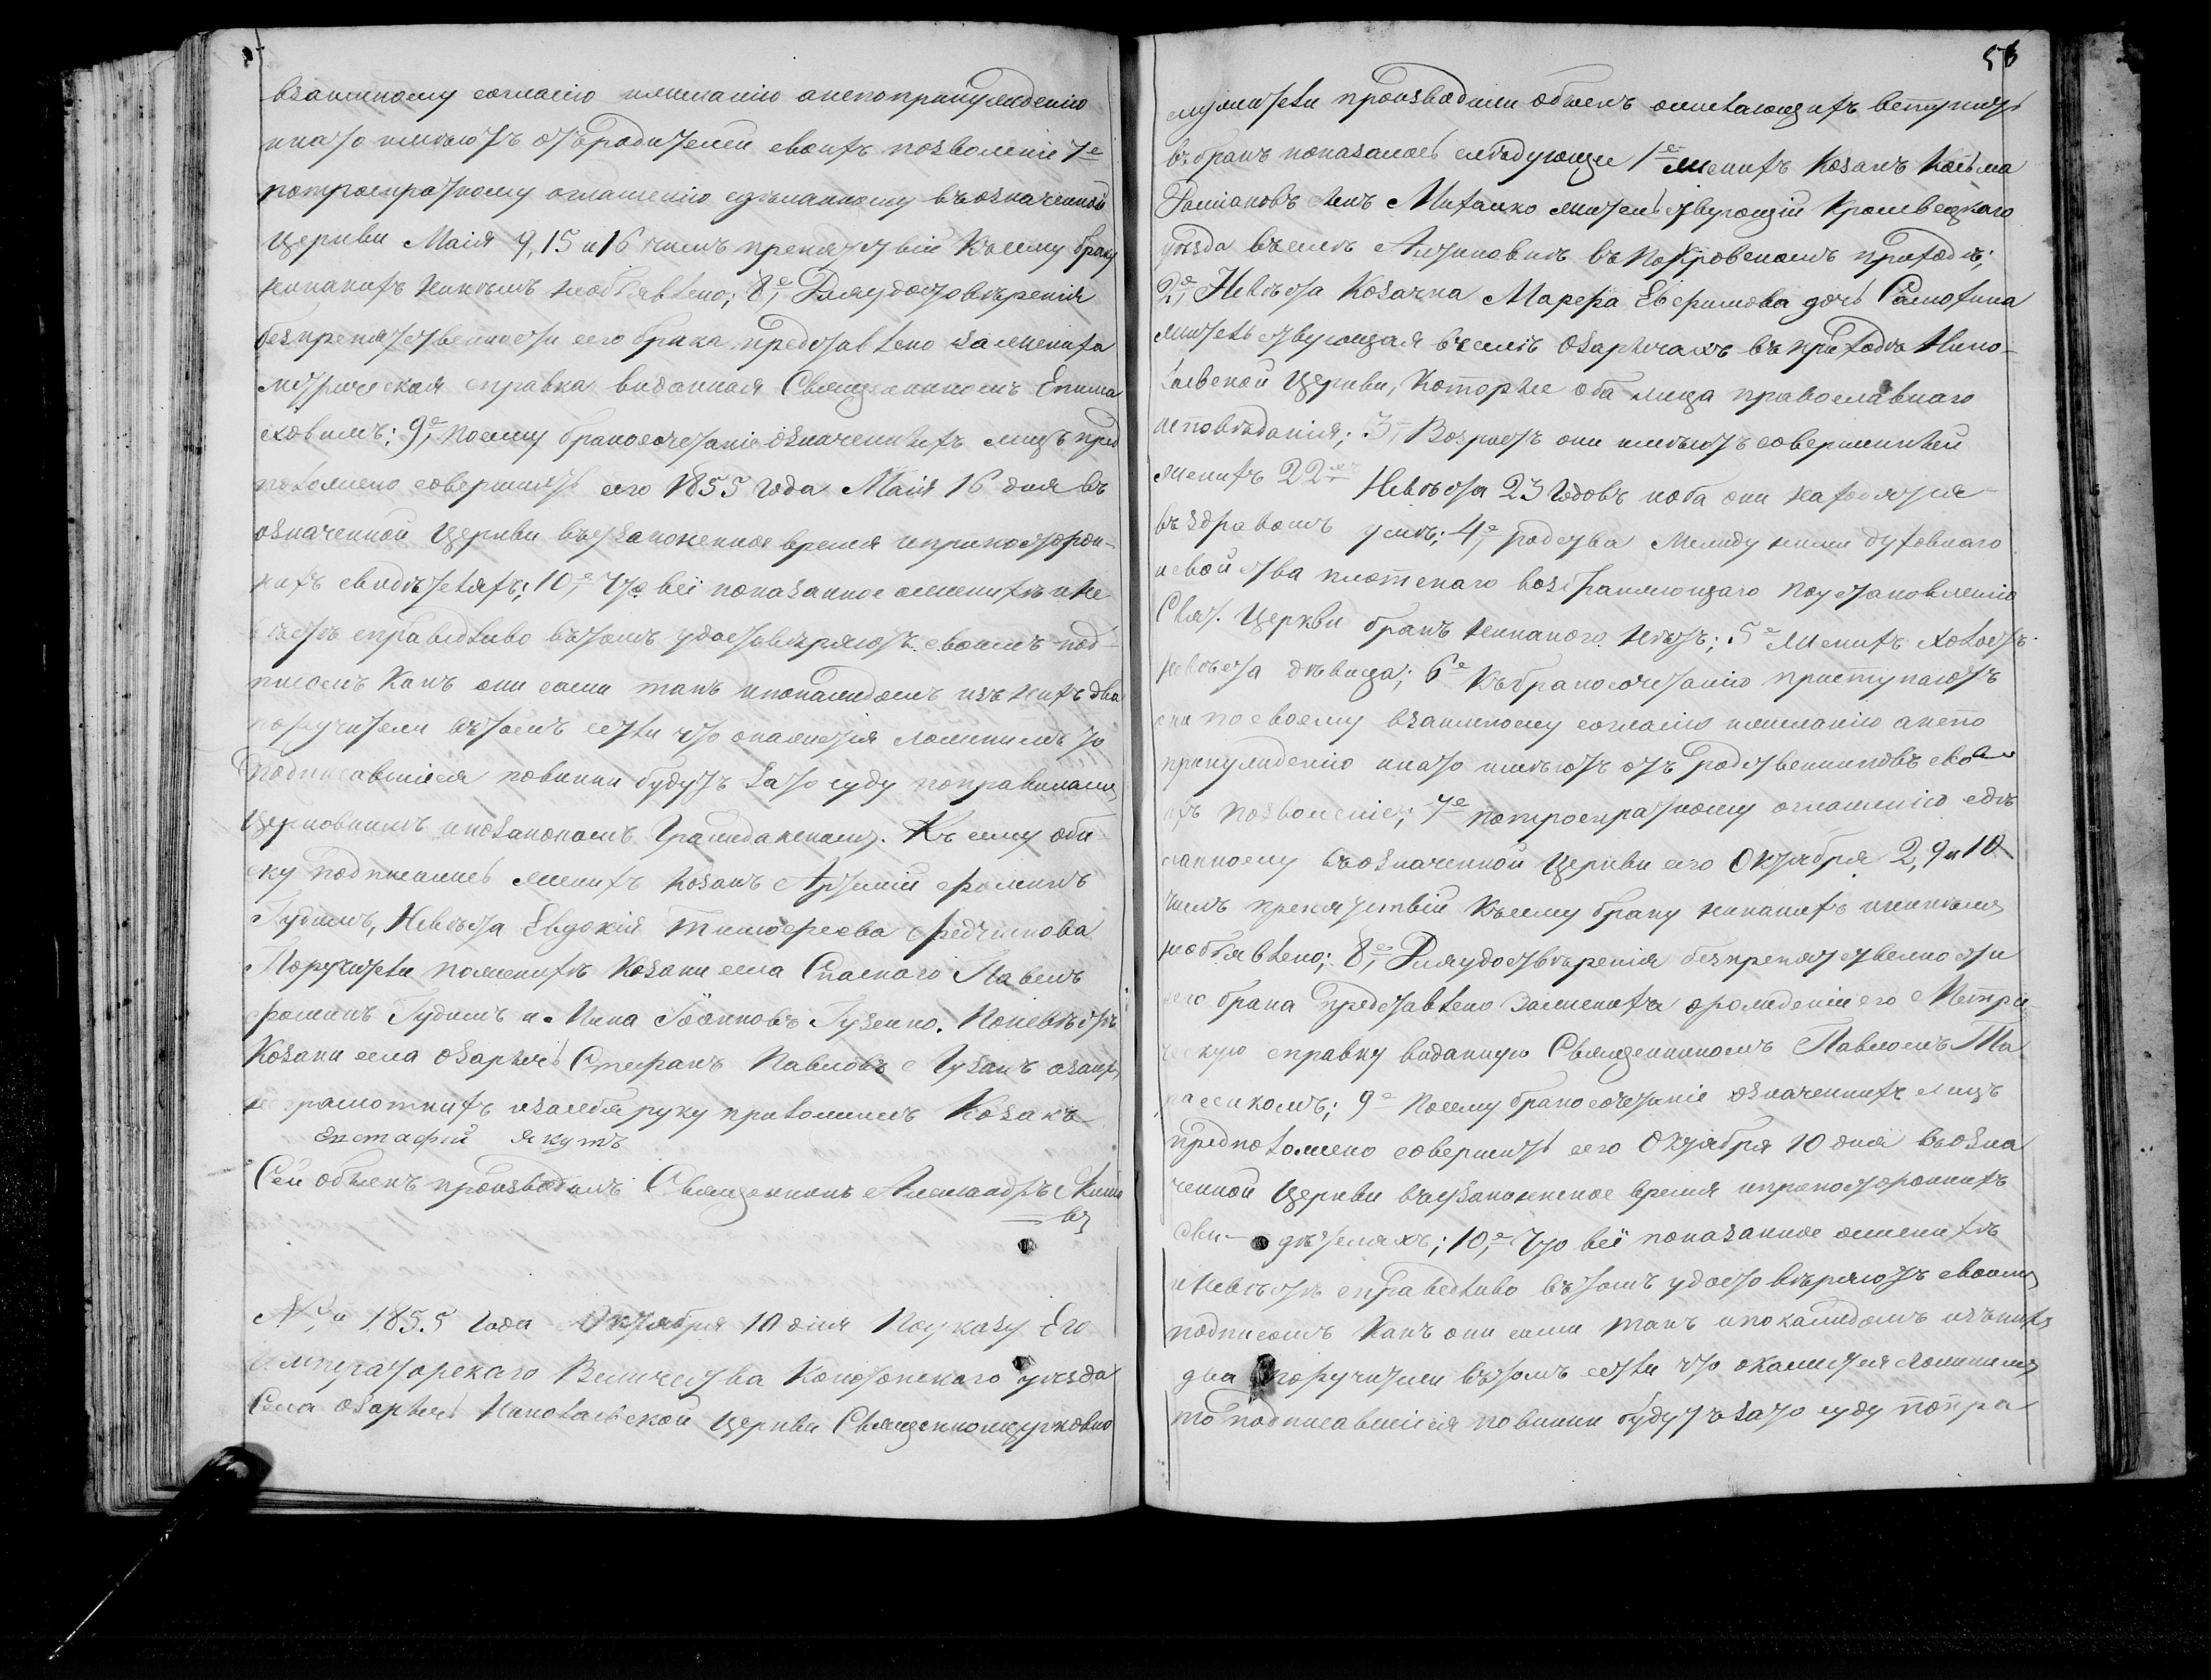 взаимному согласію ижеланію анепопринужденію
инато имѣютъ отъродителей своихъ позволеніе 7е
потроекратному оглашенію сдѣланному въозначенной
Церкви Маія 9, 15 и 16 числъ препятствій къ сему браку
никакихъ никѣмъ необъявлено; 8е, Дляудостовѣренія
безпрепятственности сего брака представлено зажениха
метрическая справка виданная Священникомъ
9е, посему бракосочетаніе означенныхъ лицъ пред
положено совершить сего 1855 года Маія 16 дня въ
означенной Церкви въузаконенное время иприпосторон-
нихъ свидѣтеляхъ; 10,е Что всё показанное оженихѣ ине
вѣстѣ справедливо вътомъ удостовѣряютъ своимъ под-
писомъ какъ они сами такъ ипокаждомъ изъ нихъ два
поручители вътомъ естли что окажется ложнимъ то
подписавшіися повинни будутъ зато суду поправиламъ
Церковнимъ ипозаконамъ Гражданскимъ. Къ сему оби
ску подписались женихъ козакъ Артемій Фоминъ
Гудимъ, Невѣста Евдокія Тимофеева
Поручители поженихѣ козаки села Спаскаго Павелъ
Фоминъ Гудимъ и Іоанновъ Гузенко. Поневѣстѣ
Козаки села Озаричъ Стефанъ Павловъ Лузанъ азанихъ
неграмотнихъ изасебя руку приложилъ Козакъ
Евстафій Якутъ
Сей обыскъ производилъ Священникъ Александръ
въ
№ 1855 года Октября 10 дня Поуказу Его
Императорскаго Величества Конотопскаго уѣзда
Села Озаричъ Николаевской Церкви Священноцерковно
56
служители производили обыскъ ожелающихъ вступить
въбракъ показалось слѣдующее 1е Женихъ Козакъ Косьма
Даміановъ синъ Михалко жительствующій Кролевецкаго
уѣзда въселѣ въПокровскомъ приходѣ;
2е, Невѣста Козачка Марфа Ефимова дочь Самохина
жительствующая вселѣ Озаричахъ въприходѣ Нико-
лаевской Церкви, которые оба лица православнаго
исповѣданія; 3е, Возрастъ они имѣютъ совершенный
женихъ 22хъ Невѣста 23 годовъ иоба они находятся
въздравомъ умѣ; 4е, родства между ними духовнаго
исвойства плотскаго возбраняющаго поустановленію
Свят. Церкви бракъ никакого нѣтъ; 5е Женихъ холостъ
невѣста дѣвица; 6е Къбракосочетанію приступаютъ
они посвоему взаимному согласію ижеланію анепо
принужденію инато имѣютъ отъ родственниковъ сво
ихъ позволеніе; 7е потроекратному оглашенію сдѣ
ланному въозначенной Церкви сего Октября 2, 9 и 10
числъ препятствій къ сему браку никакихъ иникѣмъ
необъявлено; 8,е Дляудостовѣренія безпрепятственности
сего брака представлено зажениха орожденіи его Метри-
ческую справку виданную Священникомъ Павломъ Та
рассикомъ; 9е Посему бракосочетаніе означеннихъ лицъ
предположено совершить сего Октября 10 дня въозна
ченной Церкви въузаконенное время ипрапостороннихъ
Сви- дѣтеляхъ; 10,е Что всё показанное оженихѣ
иневѣстѣ справедливо вътомъ удостовѣряютъ своимъ
подписомъ какъ они сами такъ ипокаждомъ изънихъ
два поручители вътомъ естли что окажется ложнимъ
то подписавшіися повинни будутъ зато суду попра